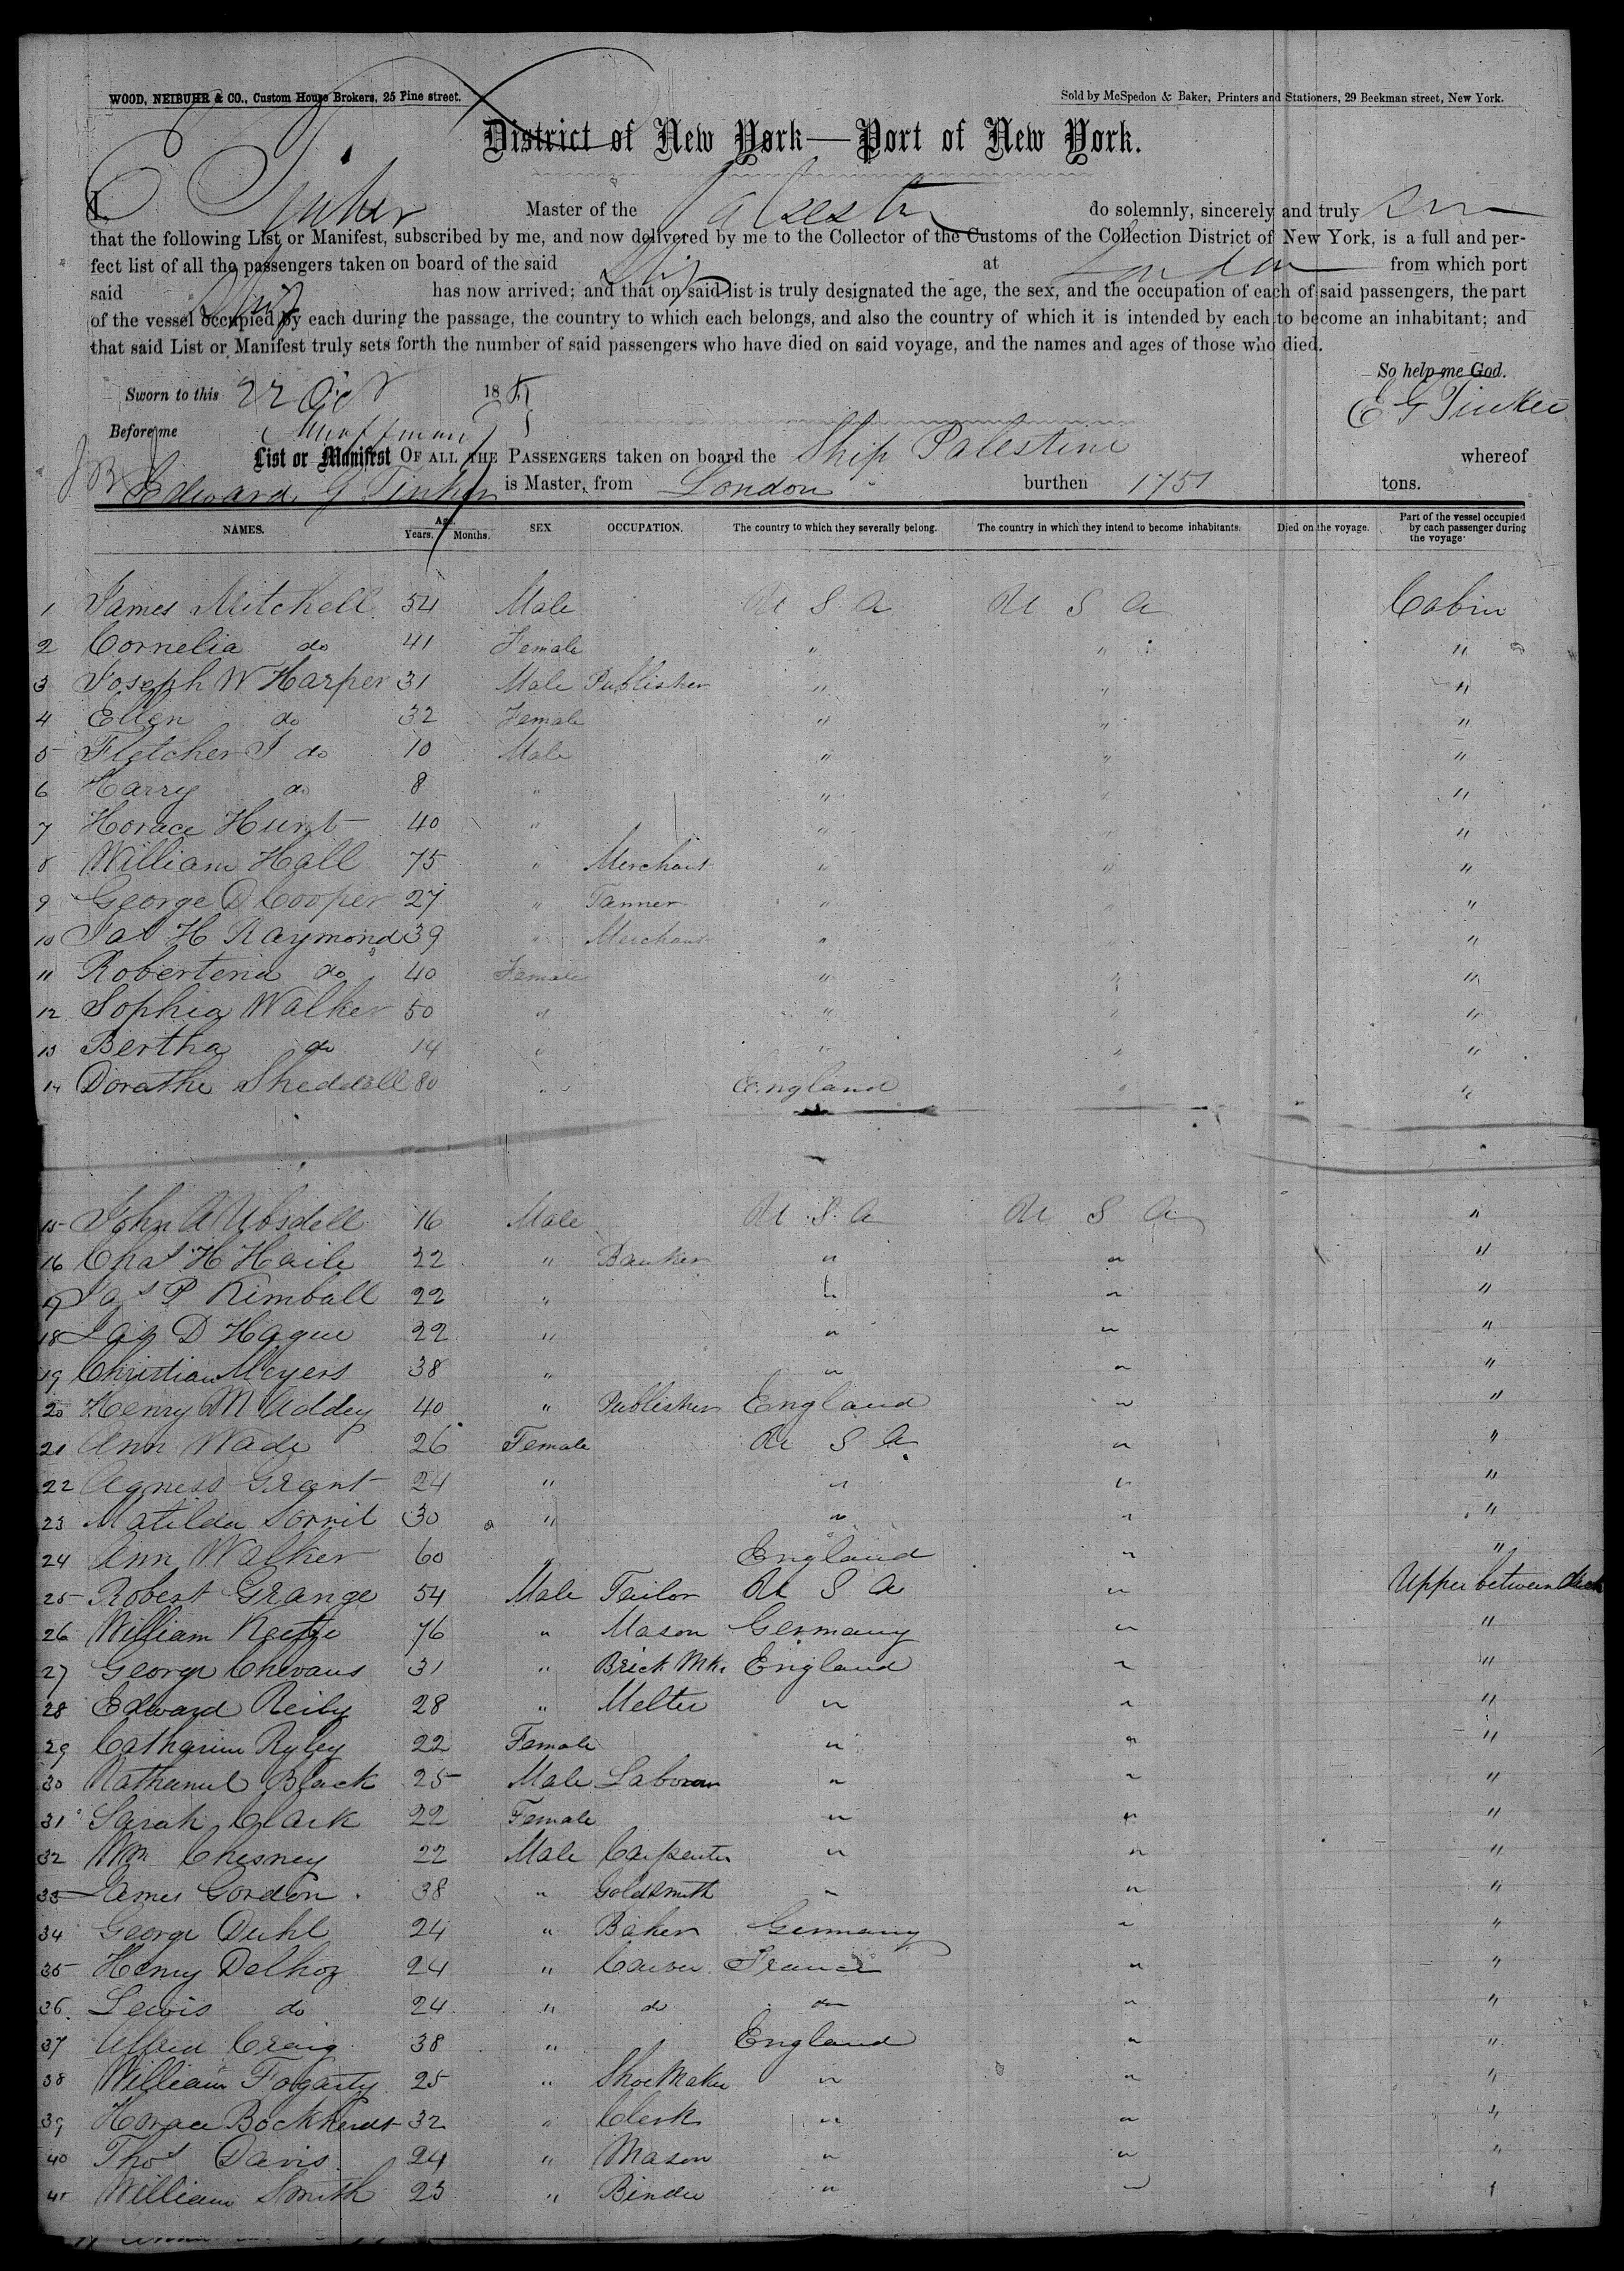 WOOD, NEIBUHR & CO., Custom House Brokers, 25 Pine street. Sold by McSpedon & Baker, Printers and Stationers, 29 Beekman street, New York.
District of New York—Port of New York.
I, E G Tinker Master of the Palestine do solemnly, sincerely and truly
that the following List or Manifest, subscribed by me, and now delivered by me to the Collector of the Customs of the Collection District of New York, is a full and per-
fect list of all the passengers taken on board of the said Ship at London from which port
said Ship has now arrived; and that on said list is truly designated the age, the sex, and the occupation of each of said passengers, the part
of the vessel occupied by each during the passage, the country to which each belongs, and also the country of which it is intended by each to become an inhabitant; and
that said List or Manifest truly sets forth the number of said passengers who have died on said voyage, and the names and ages of those who died.
So help me God.
Sworn to this 22 Oct 18
E G Tinker
Before me
List or Manifest OF ALL THE PASSENGERS taken on board the Ship Palestine whereof
Edward G Tinker is Master, from London burthen 1751 tons.
NAMES. Age. Years. Months. SEX. OCCUPATION. The country to which they severally belong. The country in which they intend to become inhabitants. Died on the voyage. Part of the vessel occupied by each passenger during the voyage
1 James Mitchell 54 Male U S A U S A Cabin
2 Cornelia do 41 Female " " "
3 Joseph W Harper 31 Male Publisher " " "
4 Ellen do 32 Female " " "
5 Fletcher J do 10 Male " " "
6 Harry do 8 " " " "
7 Horace Hunt 40 " " " "
8 William Hall 75 " Merchant " " "
9 George D Cooper 27 " Tanner " " "
10 Jas H Raymond 39 " Merchant " " "
11 Robertena do 40 Female " " "
12 Sophia Walker 50 " " " "
13 Bertha do 14 " " " "
14 Dorathe Sheddall 80 " England " "
15 John A Ubsdell 16 Male U S A U S A "
16 Chas H Haile 22 " Banker " " "
17 Jas P Kimball 22 " " " "
18 Jas D Hague 22 " " " "
19 Christian Meyers 38 " " " "
20 Henry M Addey 40 " Publisher England " "
21 Ann Wade 26 Female U S A " "
22 Agness Grant 24 " " " "
23 Matilda 30 " " " "
24 Ann Walker 60 " England " "
25 Robert Grange 54 Male Tailor U S A " Upper between deck
26 William 76 " Mason Germany " "
27 George Chevaus 31 " Brick Mkr England " "
28 Edward Reily 28 " Melter " " "
29 Catharine Ryley 22 Female " " "
30 Nathaniel Black 25 Male Laborer " " "
31 Sarah Clark 22 Female " " "
32 Wm Chesney 22 Male Carpenter " " "
33 James Gordon 38 " Goldsmith " " "
34 George Duhl 24 " Baker Germany " "
35 Henry Delhoz 24 " Carver France " "
36 Lewis do 24 " do do " "
37 Alfred Craig 38 " England " "
38 William Fogarty 25 " Shoe Maker " " "
39 Horace 32 " Clerk " " "
40 Thos Davis 24 " Mason " " "
41 William Smith 23 " Binder " " "